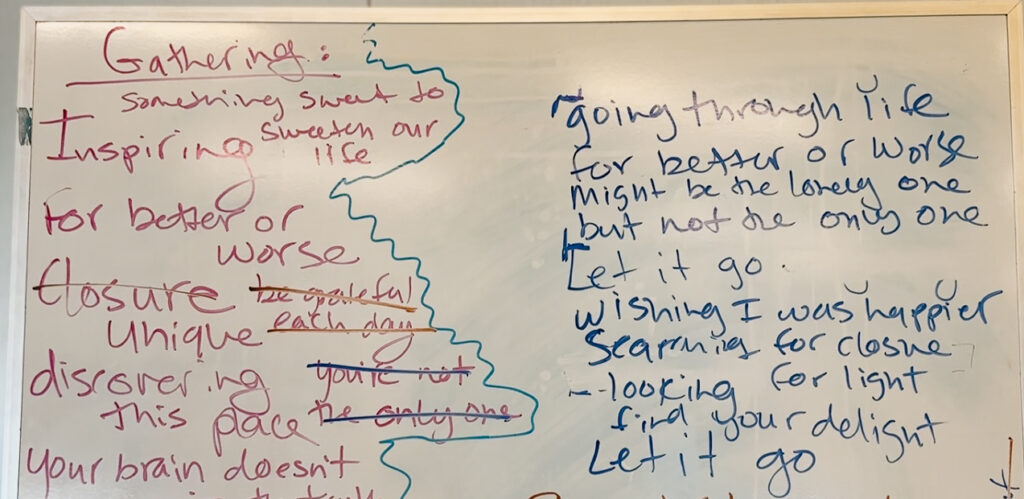 Gathering:
something sweet to
Inspiring sweeten our
life
For better or
worse
Closure be grateful
Unique each day
discovering you're not
this place the only one
your brain doesn't
going through life
for better or worse
might be the lonely one
but not the only one
Let it go.
wishing I was happier
Searching for closure
--looking for light
find your delight
Let it go